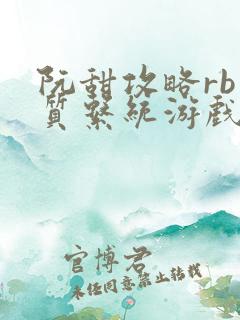 阮甜攻略rb
质系统游戏
官博君
未经同意禁止转载